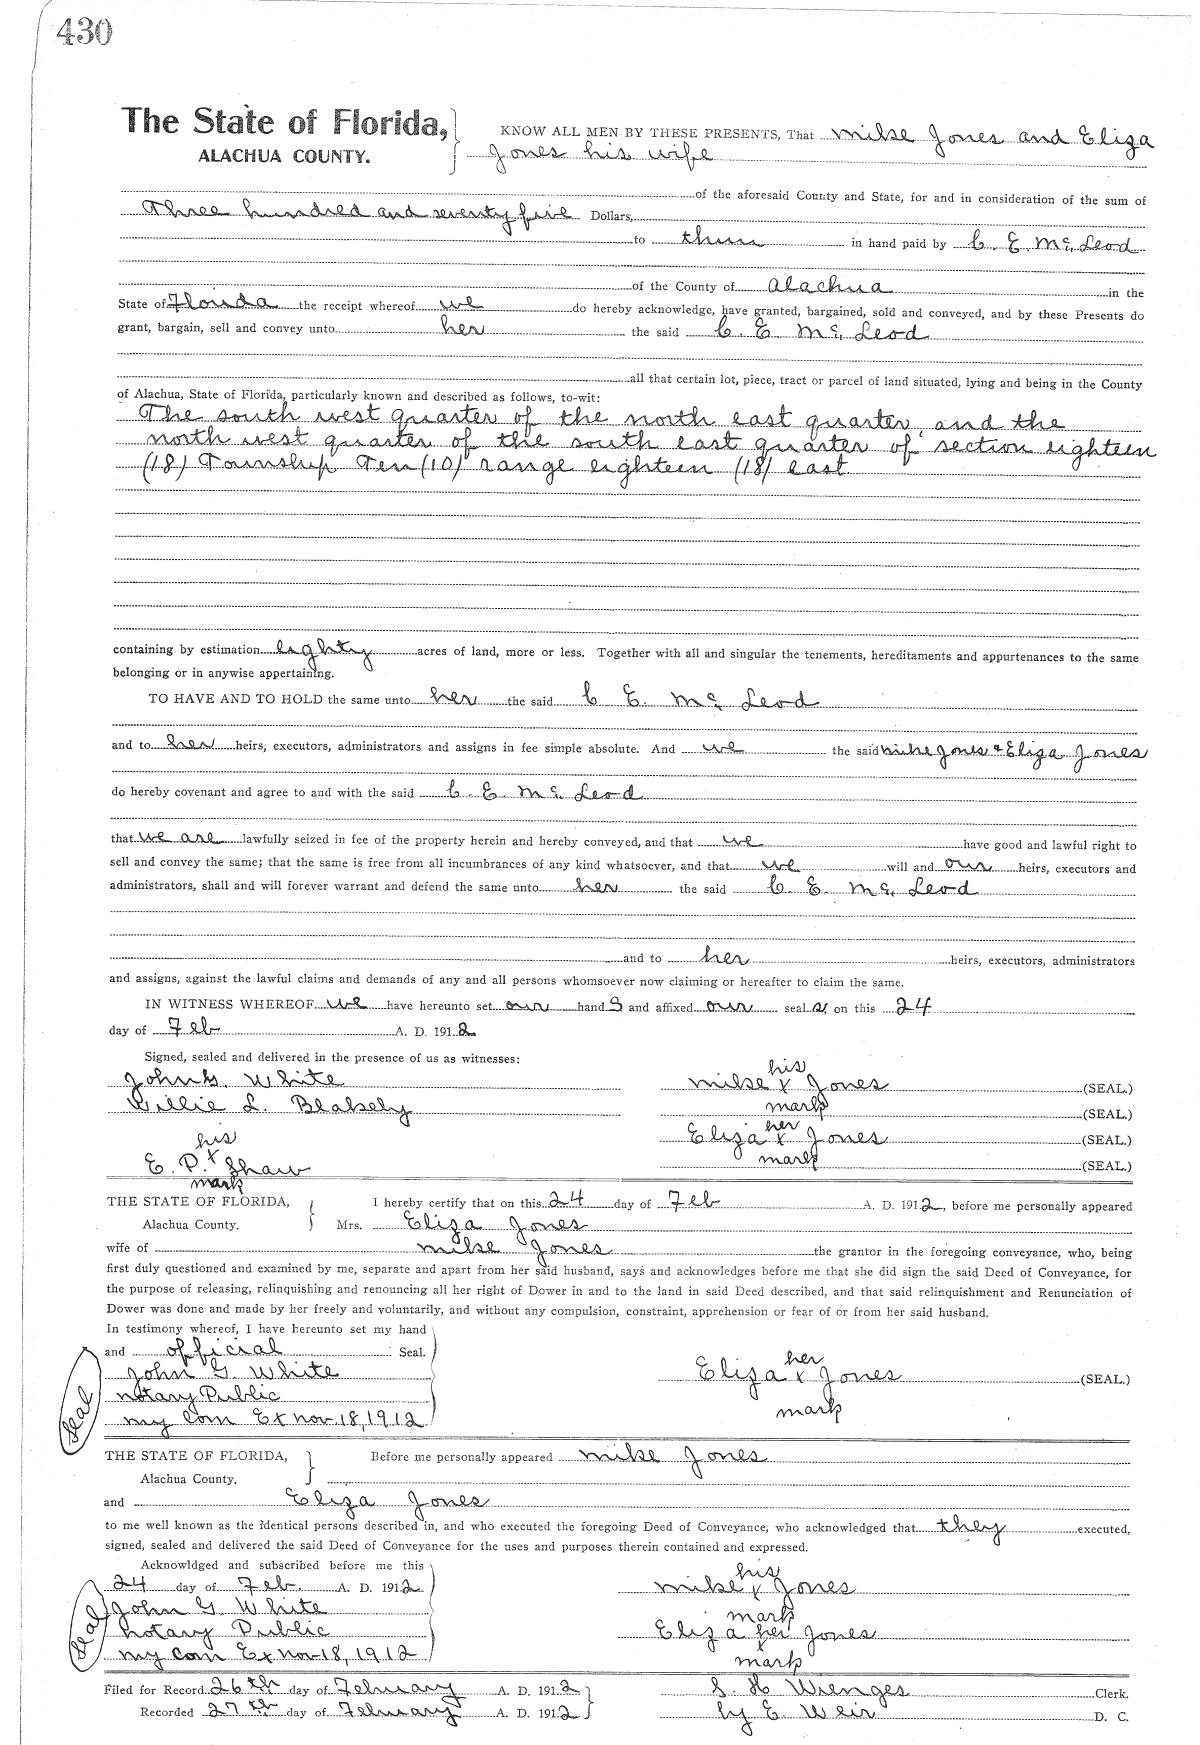 430
The State of Florida,
ALACHUA COUNTY.
KNOW ALL MEN BY THESE PRESENTS, That Mike Jones and Eliza
Jones his wife
of the aforesaid County and State, for and in consideration of the sum of
Three hundred and seventy five Dollars,
to them in hand paid by C. E. McLeod
of the County of Alachua in the
State of Florida the receipt whereof we do hereby acknowledge, have granted, bargained, sold and conveyed, and by these Presents do
grant, bargain, sell and convey unto her the said C E McLeod
all that certain lot, piece, tract or parcel of land situated, lying and being in the County
of Alachua, State of Florida, particularly known and described as follows, to-wit:
The south west quarter of the north east quarter, and the
north west quarter of the south east quarter of section eighteen
(18) Township Ten (10) range eighteen (18) east
containing by estimation eighty acres of land, more or less. Together with all and singular the tenements, hereditaments and appurtenances to the same
belonging or in anywise appertaining.
TO HAVE AND TO HOLD the same unto her the said C E. McLeod
and to her heirs, executors, administrators and assigns in fee simple absolute. And we the said Mike Jones & Eliza Jones
do hereby covenant and agree to and with the said C. E McLeod
that we are lawfully seized in fee of the property herein and hereby conveyed, and that we have good and lawful right to
sell and convey the same; that the same is free from all incumbrances of any kind whatsoever, and that we will and our heirs, executors and
administrators, shall and will forever warrant and defend the same unto her the said C. E. McLeod
and to her heirs, executors, administrators
and assigns, against the lawful claims and demands of any and all persons whomsoever now claiming or hereafter to claim the same.
IN WITNESS WHEREOF we have hereunto set our hand s and affixed our seal s, on this 24
day of Feb A. D. 1912
Signed, sealed and delivered in the presence of us as witnesses:
John G. White
Willie L. Blakely
his
E. P. x Shaw
mark
his
Mike x Jones (SEAL.)
mark (SEAL.)
her
Eliza x Jones (SEAL.)
mark (SEAL.)
THE STATE OF FLORIDA,
Alachua County.
I hereby certify that on this 24 day of Feb A. D. 1912, before me personally appeared
Mrs. Eliza Jones
wife of Mike Jones the grantor in the foregoing conveyance, who, being
first duly questioned and examined by me, separate and apart from her said husband, says and acknowledges before me that she did sign the said Deed of Conveyance, for
the purpose of releasing, relinquishing and renouncing all her right of Dower in and to the land in said Deed described, and that said relinquishment and Renunciation of
Dower was done and made by her freely and voluntarily, and without any compulsion, constraint, apprehension or fear of or from her said husband.
In testimony whereof, I have hereunto set my hand
and official Seal.
John G. White
Notary Public
my Com Ex Nov. 18, 1912
Seal
her
Eliza x Jones (SEAL.)
mark
THE STATE OF FLORIDA,
Alachua County.
Before me personally appeared Mike Jones
and Eliza Jones
to me well known as the identical persons described in, and who executed the foregoing Deed of Conveyance, who acknowledged that they executed,
signed, sealed and delivered the said Deed of Conveyance for the uses and purposes therein contained and expressed.
Acknowldged and subscribed before me this
24 day of Feb. A. D. 1912.
John G. White
Notary Public
my Com Ex Nov 18, 1912
Seal
his
Mike x Jones
mark
Eliza her Jones
x
mark
Filed for Record 26th day of February A. D. 1912
Recorded 27th day of February A. D. 1912
S. H. Wienges Clerk.
by E. Weir D. C.